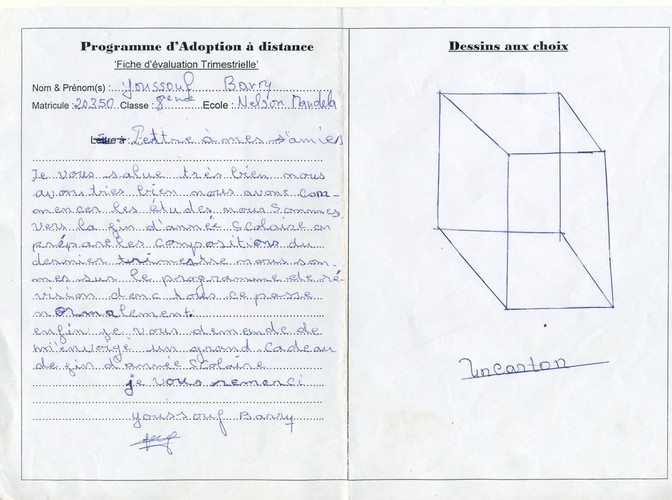 Programme d'Adoption à distance
'Fiche d'évaluation Trimestrielle'
Nom & Prénom(s) : Youssouf Barry
Matricule : 20350 Classe : 8eme Ecole : Nelson Mandela
Lettre à : Lettre à mes s'amies
Je vous salue très bien nous
avons tries bien nous avons com-
mencer les études nous sommes
vers la fin d'année scolaire on
prépare les compositions du
dernier trimestre nous som-
mes sur le programme de ré-
vision donc tous ce passe
normalement.
enfin je vous demende de
m'envoyé un grand cadeau
de fin d'année scolaire
je vous remerci
Youssouf Barry
Dessins aux choix
Un carton